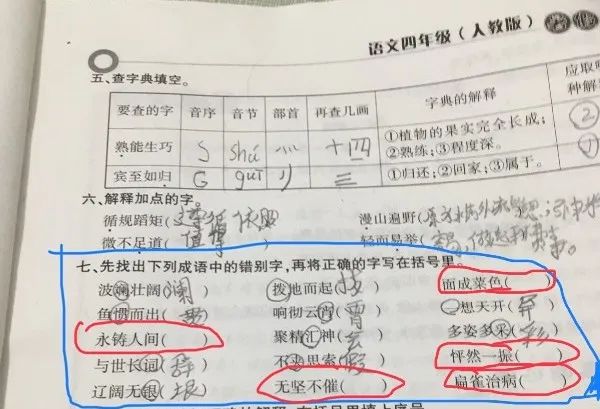 语文四年级(人教版)
五、查字典填空。
要查的字 音序 音节 部首 再查几画 字典的解释 应取
种解
熟能生巧 S shú 灬 十四 ①植物的果实完全长成;②熟练;③程度深。 ②
宾至如归 G guī 刂 三 ①归还;②回家;③属于。
六、解释加点的字
循规蹈矩( 漫山遍野(
微不足道(值得) 轻而易举(
七、先找出下列成语中的错别字,再将正确的字写在括号里。
波斓壮阔(澜) 拨地而起(拔) 面成菜色( )
鱼惯而出( ) 响彻云肖(霄) 想天开(异)
永铸人间( ) 聚精汇神(会) 多姿多采(彩)
与世长词(辞) 不 思索(假) 怦然一振( )
辽阔无银(垠) 无坚不催( ) 扁雀治病( )